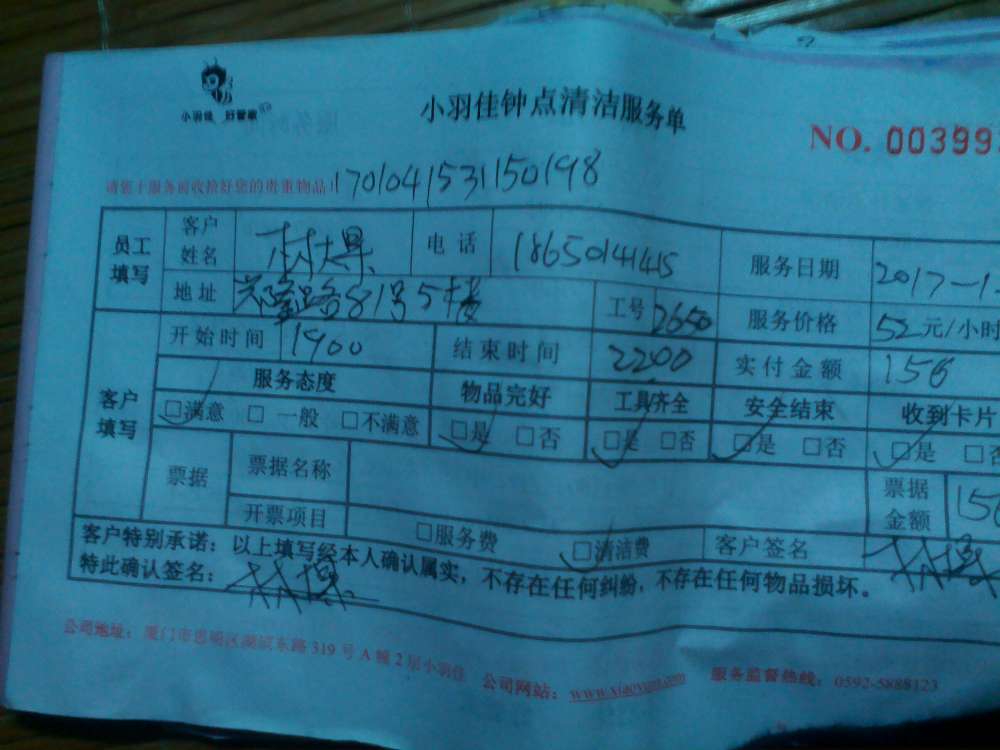 小羽佳 好管家
小羽佳钟点清洁服务单
NO. 00399
请您于服务前收拾好您的贵重物品!
1701041531150198
员工填写
客户姓名
电话 18650141415
服务日期 2017-1-
地址 兴隆路81号5楼
工号 2650
服务价格 52元/小时
客户填写
开始时间 1900
结束时间 2200
实付金额 156
服务态度 物品完好 工具齐全 安全结束 收到卡片
□满意 □一般 □不满意 □是 □否 □是 □否 □是 □否 □是 □否
票据 票据名称
票据金额 156
开票项目 □服务费 □清洁费 客户签名
客户特别承诺：以上填写经本人确认属实，不存在任何纠纷，不存在任何物品损坏。
特此确认签名：
公司地址：厦门市思明区湖滨东路319号A幢2层小羽佳
公司网站：
服务监督热线：0592-5888123